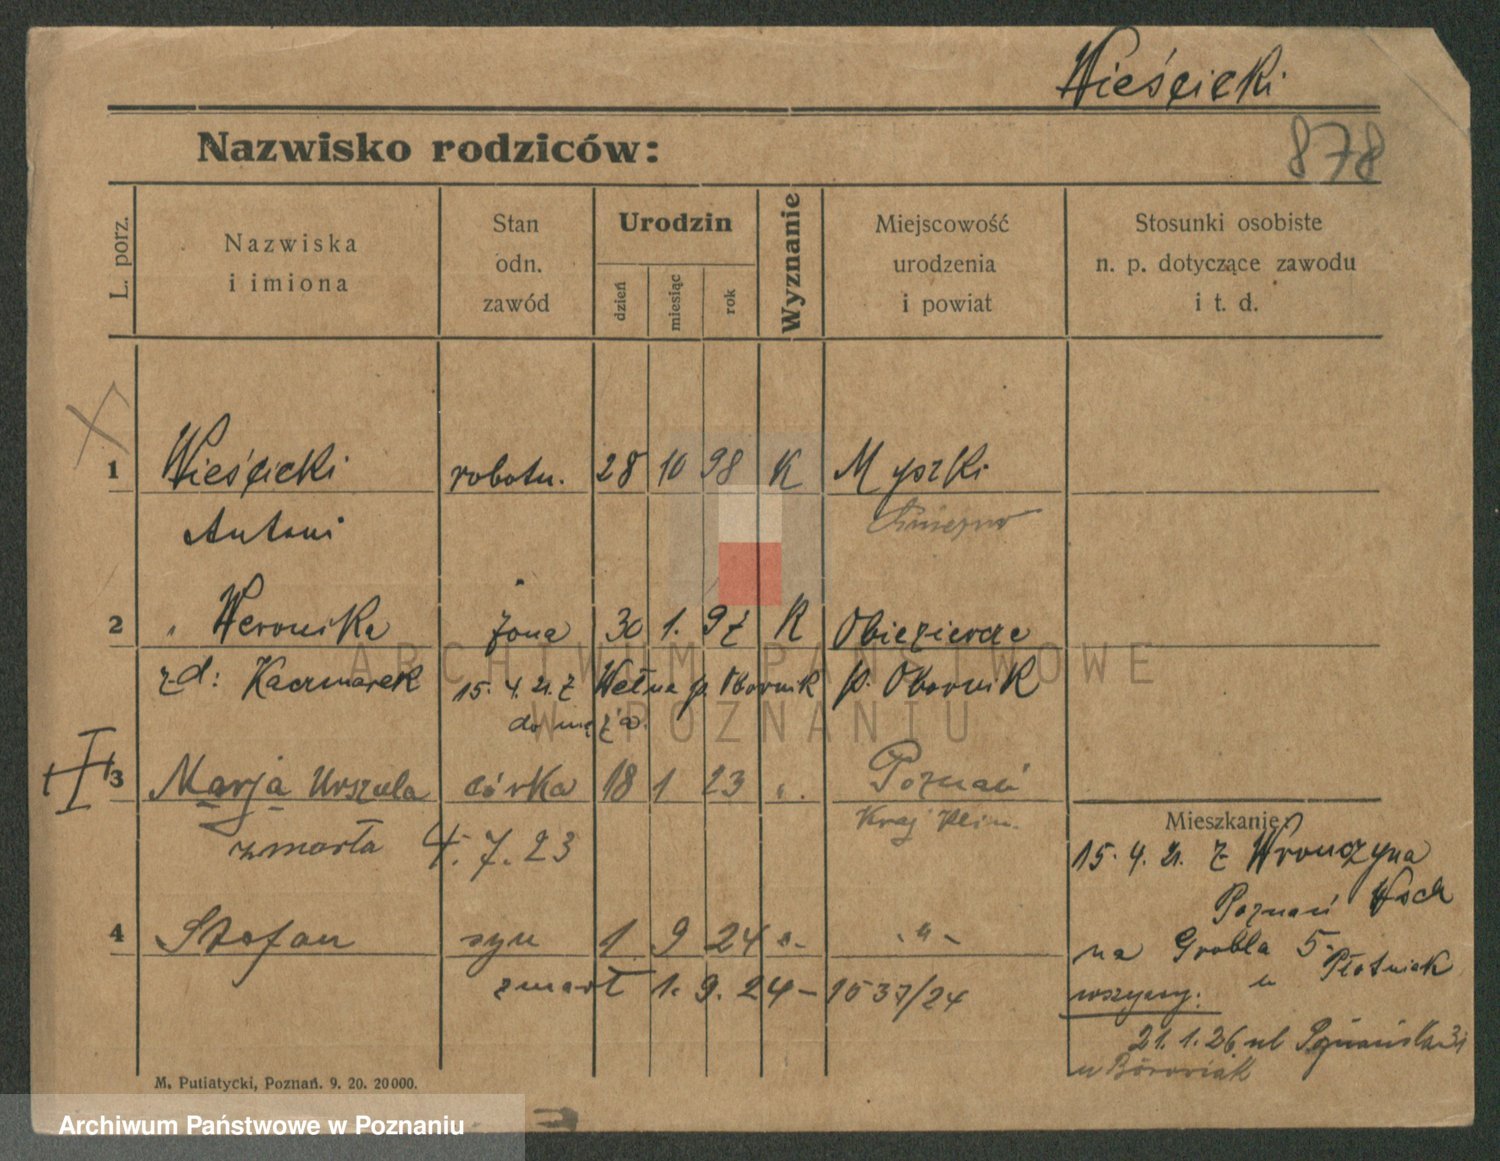 Wieścicki
878
Nazwisko rodziców:
L. porz.
Nazwiska
i imiona
Stan
odn.
zawód
Urodzin
dzień
miesiąc
rok
Wyznanie
Miejscowość
urodzenia
i powiat
Stosunki osobiste
n. p. dotyczące zawodu
i t. d.
1 Wieścicki robotn. 28 10 98 K Myszki
Antoni Gniezno
2 " Weronika żona 30 1. 97 K Obiezierze
zd: Kaczmarek 15. 4. 21. z Wełna p. Obornik p. Obornik
do męża.
3 Marja Urszula córka 18 1 23 " . Poznań
zmarła 4. 7. 23
Kraj
4 Stefan syn 1 9 24 " - " -
zmarł 1. 9. 24 - 1037/24
Mieszkanie:
15. 4. 21. z Wronczyna
Poznań Wsch
na Grobla 5.
u Płotniak
wszyscy.
21. 1. 26 ul
u Borowiak
M. Putiatycki, Poznań. 9. 20. 20000.
ARCHIWUM PAŃSTWOWE
W POZNANIU
Archiwum Państwowe w Poznaniu